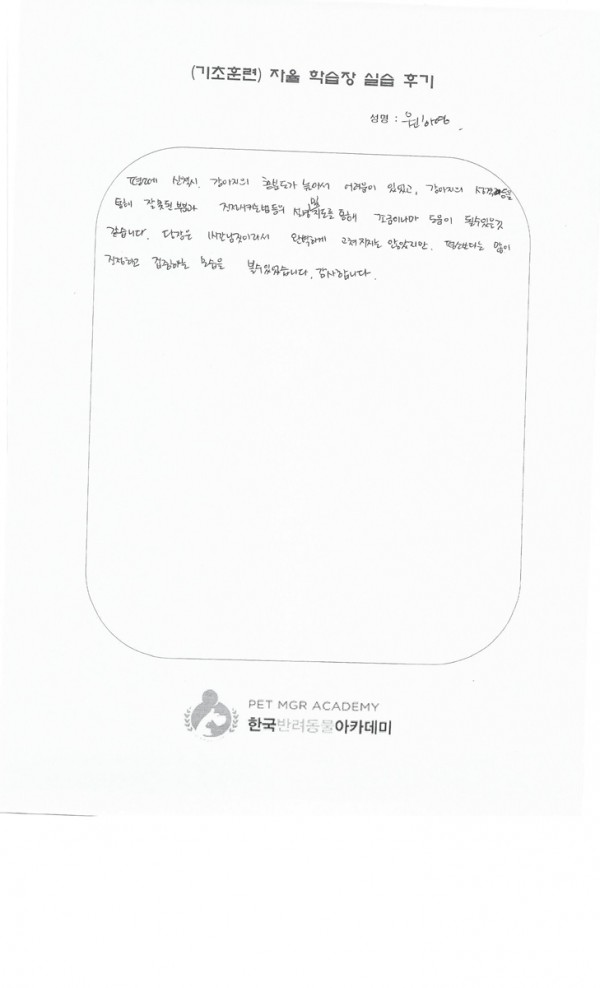 (기초훈련) 자율 학습장 실습 후기
성명 :
평소에 산책시, 강아지의 흥분도가 높아서 어려움이 있었고, 강아지의 성격
통해 잘못된 부분과 및 통해 조금이나마 도움이 될수있을것
같습니다. 당장은 1시간남짓이라서 완벽하게 고쳐지지는 않았지만, 평소보다는 많이
진정하고 집중하는 모습을 볼수있었습니다. 감사합니다.
PET MGR ACADEMY
한국반려동물아카데미